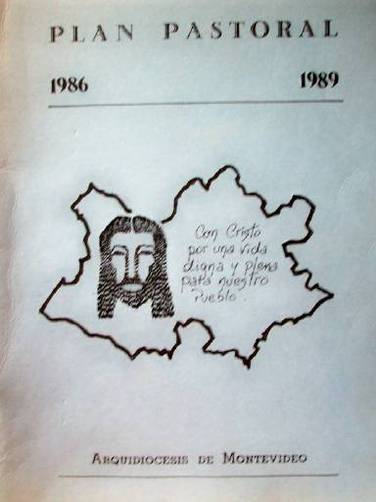 PLAN PASTORAL
1986 1989
Con Cristo
por una vida
digna y plena
para nuestro
Pueblo.
ARQUIDIOCESIS DE MONTEVIDEO